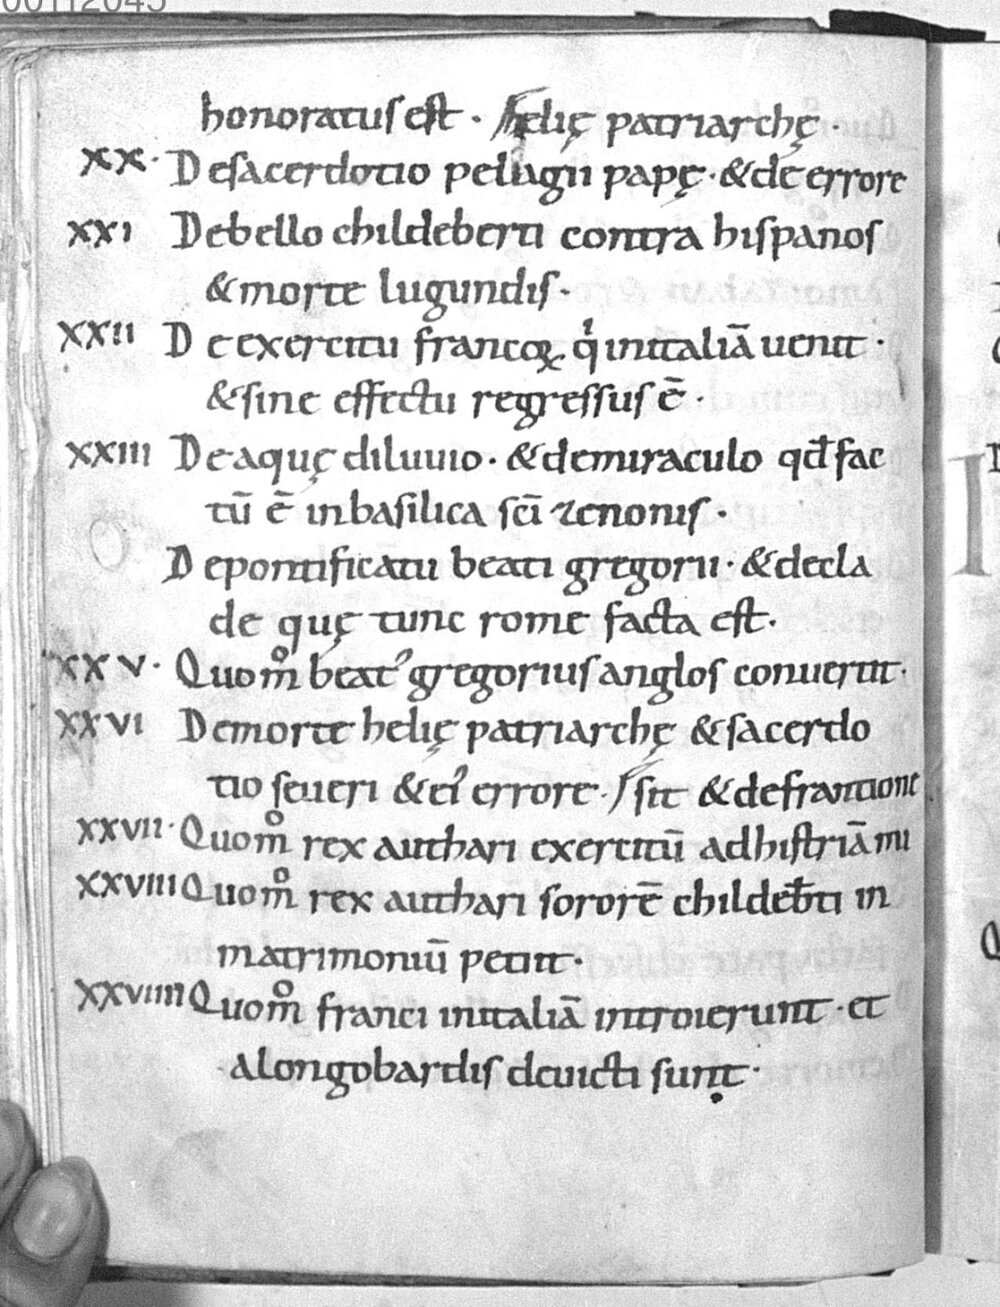 honoratus est · helię patriarchę ·
XX · De sacerdotio pelagii papę · & de errore
XXI De bello childeberti contra hispanos
& morte Iugundis ·
XXII De exercitu francoꝝ. qͥ in italiā uenit ·
& sine effectu regressus ē ·
XXIII De aquę diluuio · & de miraculo qđ fac
tū ē in basilica scī zenonis ·
De pontificatu beati gregorii · & de cla
de quę tunc rome facta est.
XXV · Quom̊ beatꝰ gregorius anglos conuertit ·
XXVI De morte helię patriarchę & sacerdo
tio seueri & eiꝰ errore · / sit & de frontione
XXVII · Quom̊ rex authari exercitū ad histriā mi
XXVIII Quom̊ rex authari sororē childeƀti in
matrimoniū petiit ·
XXVIIII Quom̊ franci in italiā introierunt · et
a longobardis deuicti sunt ·